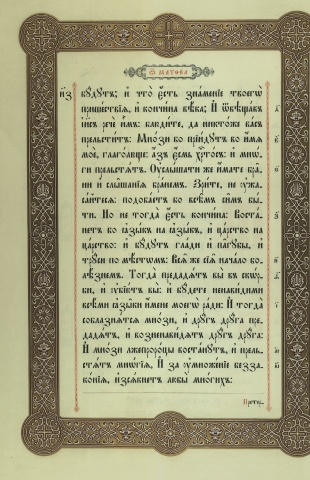 Ѿ МАТѲЕА
и҃з
бꙋдꙋтъ; и҆ что̀ є҆́сть зна́менїе твоегѡ̀
прише́ствїѧ, и҆ кончи́на вѣ́ка; И҆ ѿвѣща́въ
і҆и҃съ речѐ и҆̀мъ: блюди́те, да никто́же ва́съ
прельсти́тъ: Мно́зи бо прїи́дꙋтъ во и҆́мѧ
моѐ, глаго́люще: а҆́зъ є҆́смь хрⷭ҇то́съ: и҆ мнѡ́-
ги прельстѧ́тъ. Оу҆слы́шати же и҆́мате бра̑-
ни и҆ слы̑шанїѧ бра́немъ. Зри́те, не ᲂу҆жа-
са́йтесѧ: подоба́етъ бо всѣ̑мъ си̑мъ бы́-
ти. Но не тогда̀ є҆́сть кончи́на: Воста́-
нетъ бо ꙗ҆зы́къ на ꙗ҆зы́къ, и҆ ца́рство на
ца́рство: и҆ бꙋ́дꙋтъ гла́ди и҆ па́гꙋбы, и҆
трꙋ́си по мѣ́стѡмъ: Всѧ̑ же сїѧ̑ нача́ло бо-
лѣ́знемъ. Тогда̀ предадѧ́тъ вы̀ въ скѡ́р-
би, и҆ ᲂу҆бїю́тъ вы̀: и҆ бꙋ́дете ненави́дими
всѣ́ми ꙗ҆зы́ки и҆́мене моегѡ̀ ра́ди: И҆ тогда̀
соблазнѧ́тсѧ мно́зи, и҆ дрꙋ́гъ дрꙋ́га пре-
дадѧ́тъ, и҆ возненави́дѧтъ дрꙋ́гъ дрꙋ́га:
И҆ мно́зи лжепроро́цы воста́нꙋтъ, и҆ прель-
стѧ́тъ мнѡ́гїѧ, И҆ за ᲂу҆множе́нїе безза-
ко́нїѧ, и҆зсѧ́кнетъ любы̀ мно́гихъ:
Претер-